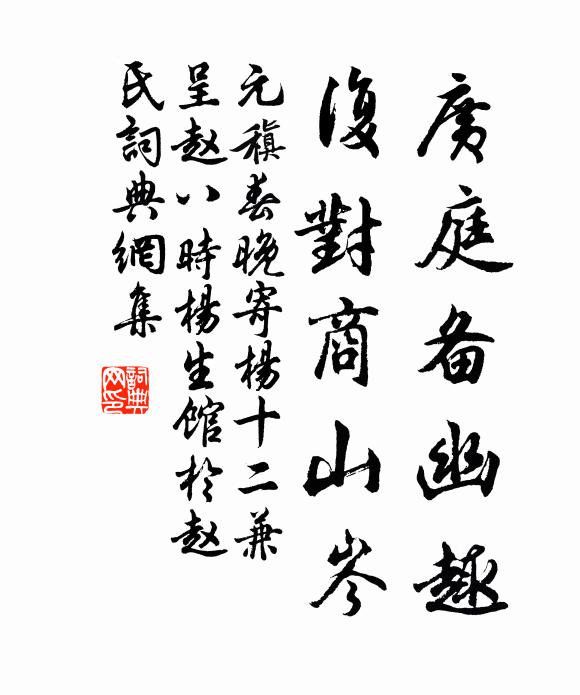 廣庭备幽趣
復對商山岑
元稹春晚寄楊十二兼
呈赵八時楊生館於赵
氏詞典網集
詞典
网印